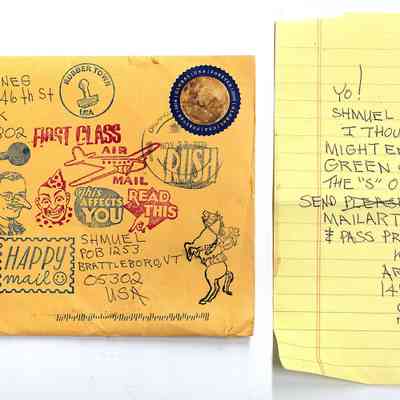 NES
46th St
K
802
RUBBER TOWN
USA
FIRST CLASS
AIR
MAIL
RUSH
This
AFFECTS
YOU
READ
THIS
HAPPY
mail
SHMUEL
POB 1253
BRATTLEBORO, VT
05302
USA
YO!
SHMUEL
I THOU
MIGHT E
GREEN
THE "S" O
SEND PLEASE
MAILART
& PASS PR
K
AR
14